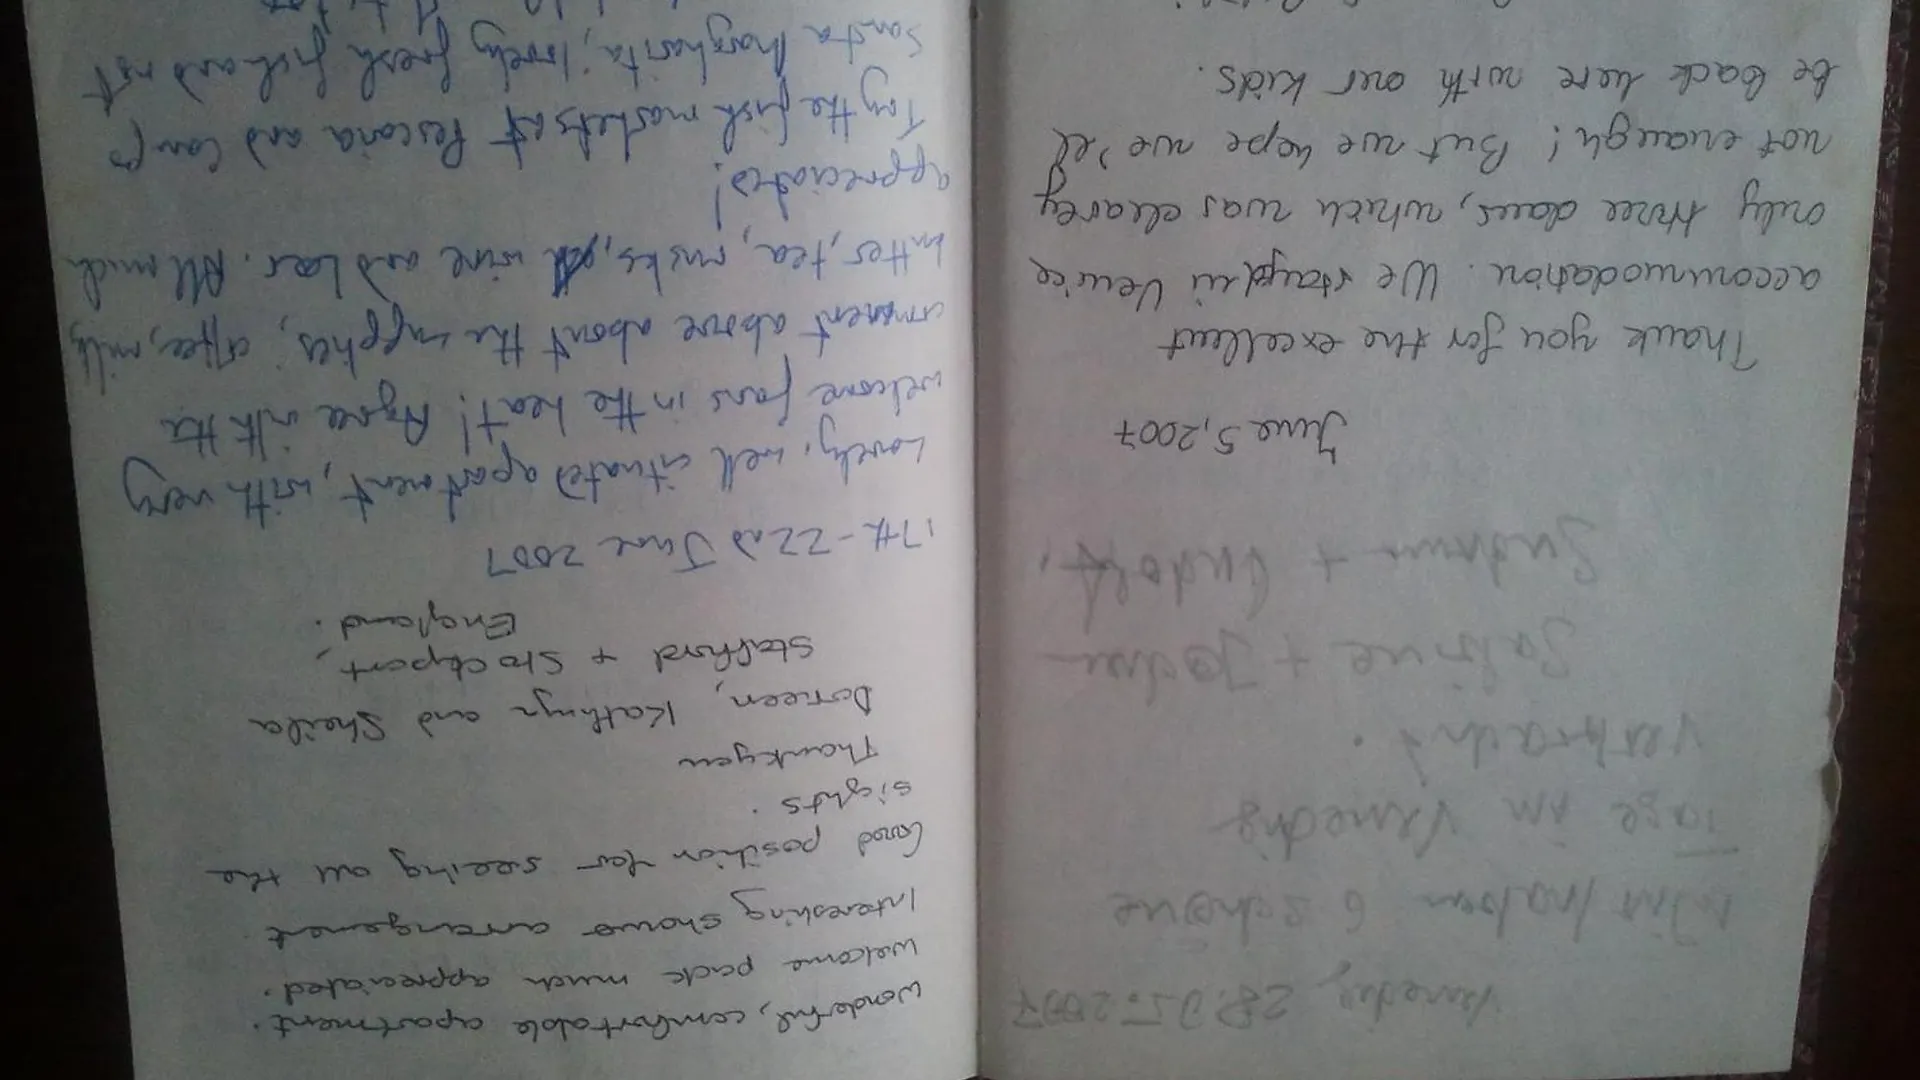 Venedig, 28.05.2007
Wir haben 6 schöne
Tage in Venedig
verbracht.
Sabine +
+ Rudolf.
June 5, 2007
Thank you for the excellent
accommodation. We stayd in Venice
only three daies, which was clearey
not enough! But we hope we'el
be back here with our kids.
Wonderful, comfortable apartment.
Welcome pack much appreciated.
Interesting shower arrangement.
Good position for seeing all the
sights.
Thankyou
Doreen, Kathryn and Sheila
Stafford + Stockport,
England.
17th - 22nd June 2007
Lovely, well situated apartment, with very
welcome fans in the heat! Agree with the
comment above about the supplies, coffee, milk,
butter, tea, rusks, wine and beer. All much
appreciated!
Try the fish markets at Pescaria and Campo
Santa Margharita, lovely fresh fish and not